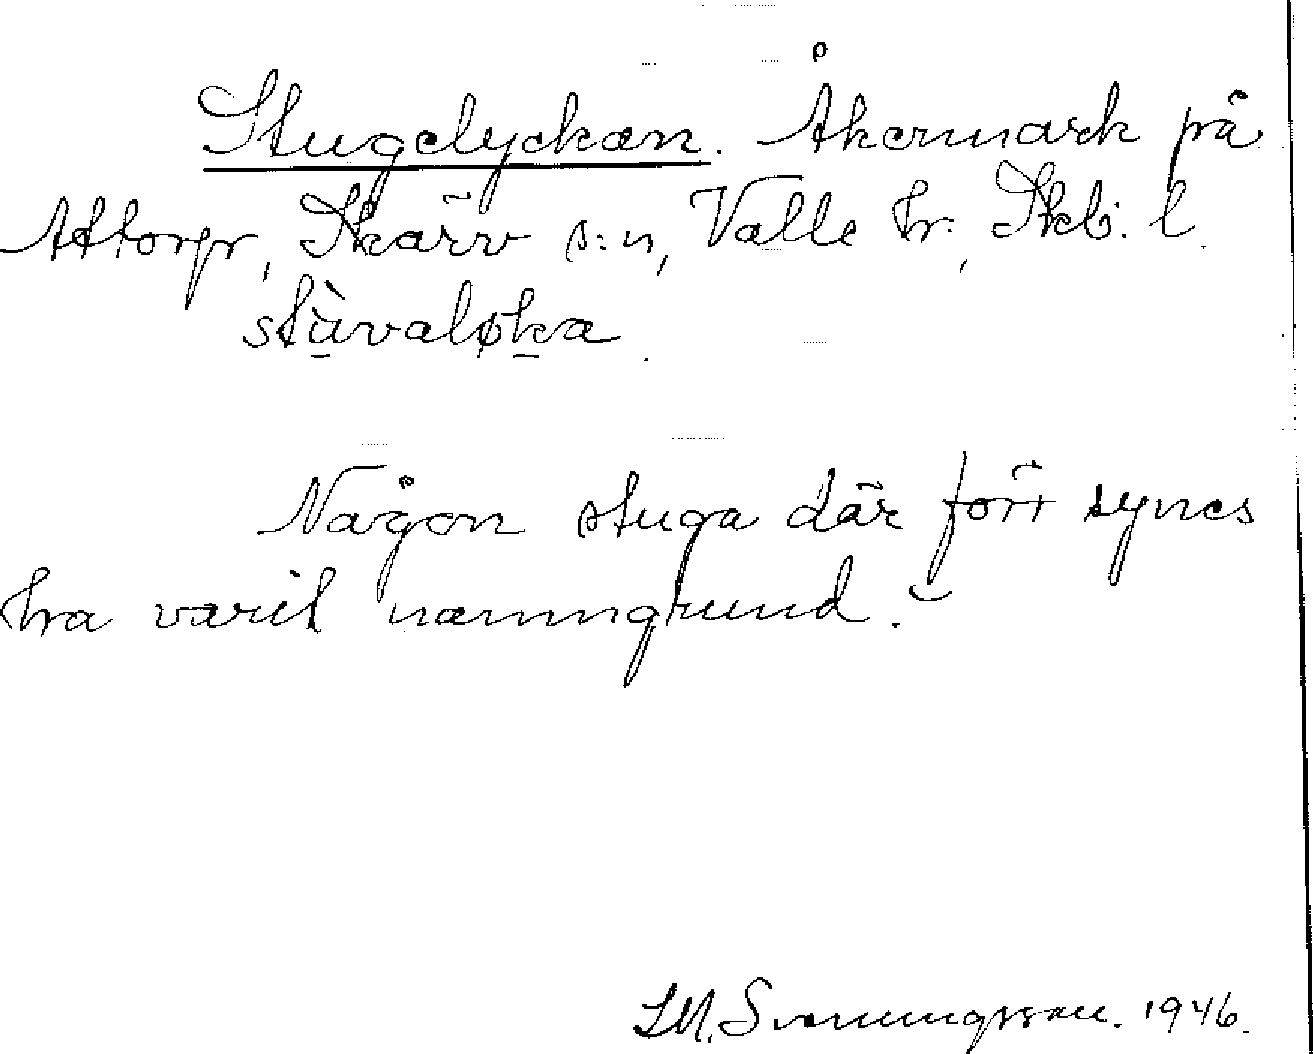 Stugelyckan. Åkermark på
Attorp, Skärv s:n, Valle hr. Skb. l.
stùvaløka
Någon stuga där förr synes
ha varit namngrund.
S.M. Svenungsson. 1946.